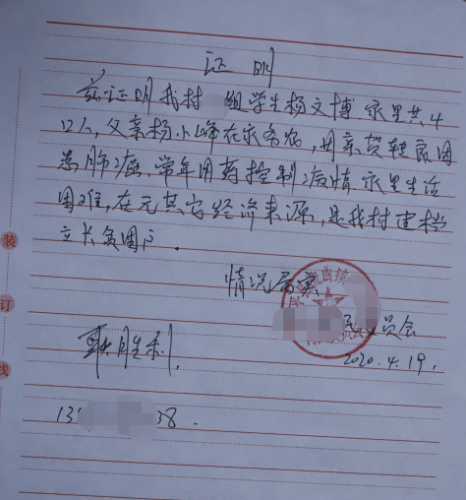 证明
兹证明我村 组学生杨文博家里共4
口人,父亲杨小峰在家务农,母亲贺艳良因
患肺癌、常年用药控制病情家里生活
困难,在无其它经济来源,是我村建档
立卡贫困户.
情况属实
员会
2020.4.19.
胜利
13 38.
装
订
线